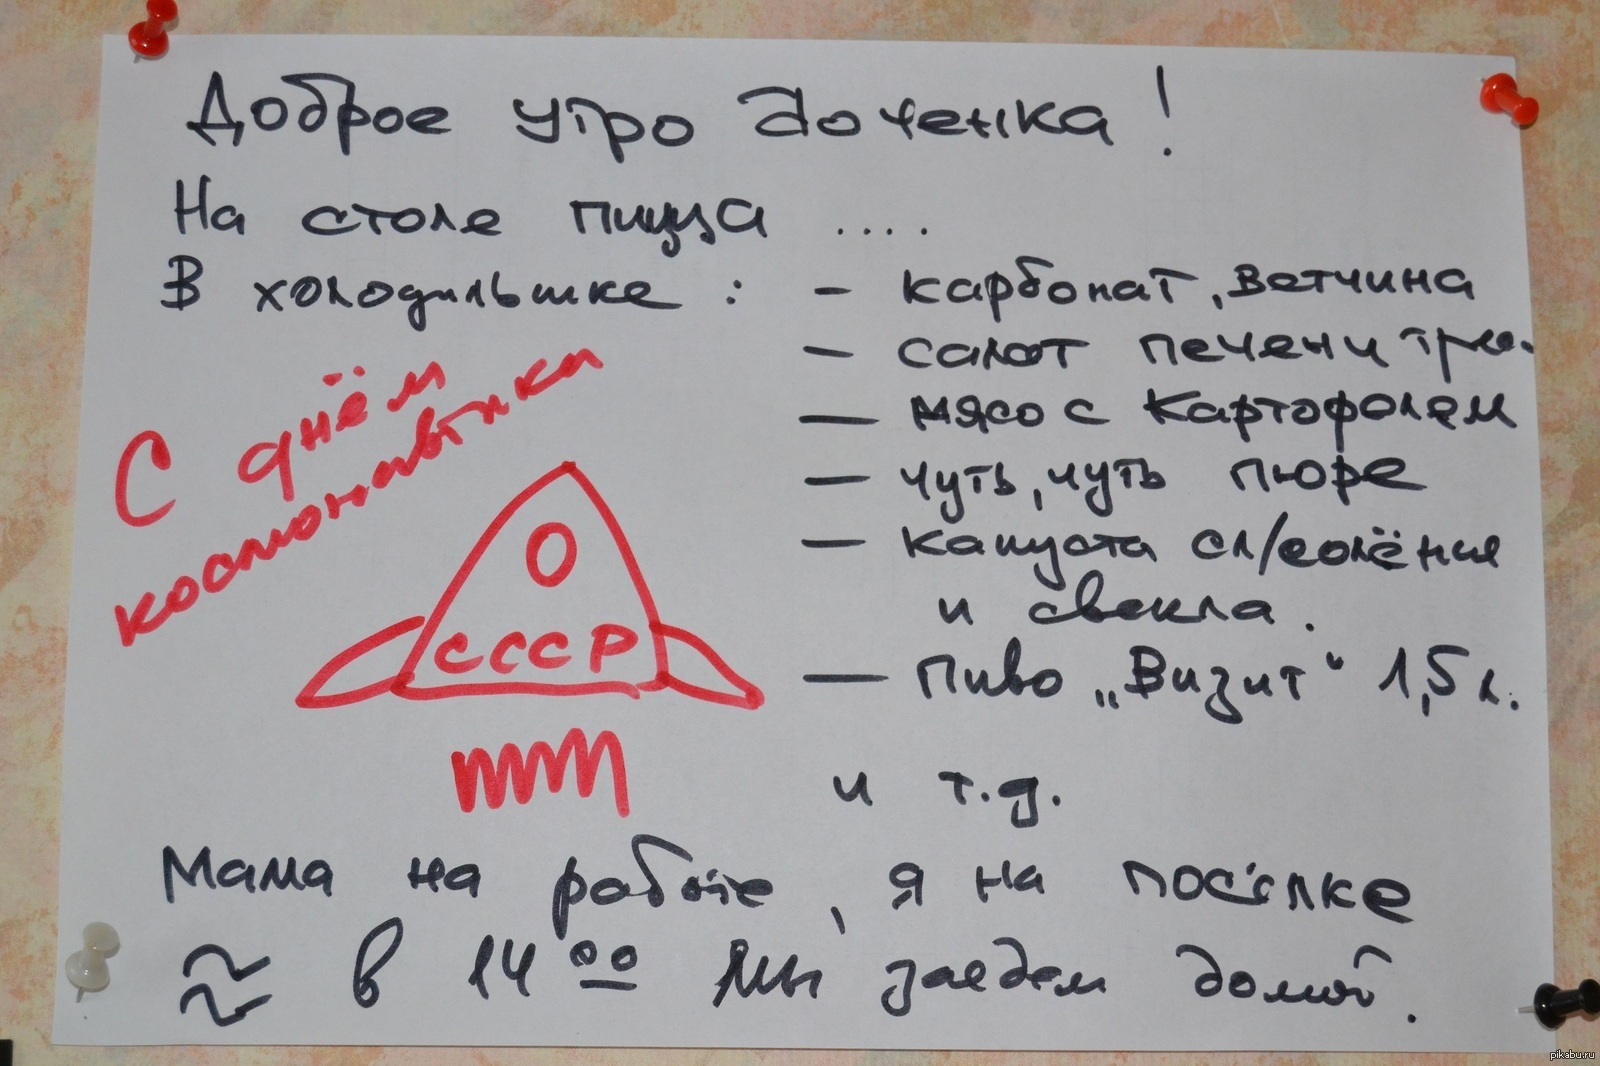 Доброе утро доченка!
На столе пицца ....
В холодильнике : - карбонат, ветчина
- салат печени
- мясо с картофелем
- чуть, чуть пюре
- капуста сл/солёная
и свекла.
- пиво „Визит“ 1,5 л.
и т.д.
С днём
космонавтики
О
СССР
Мама на работе, я на
≈ в 14 00 мы заедем домой.
pikabu.ru